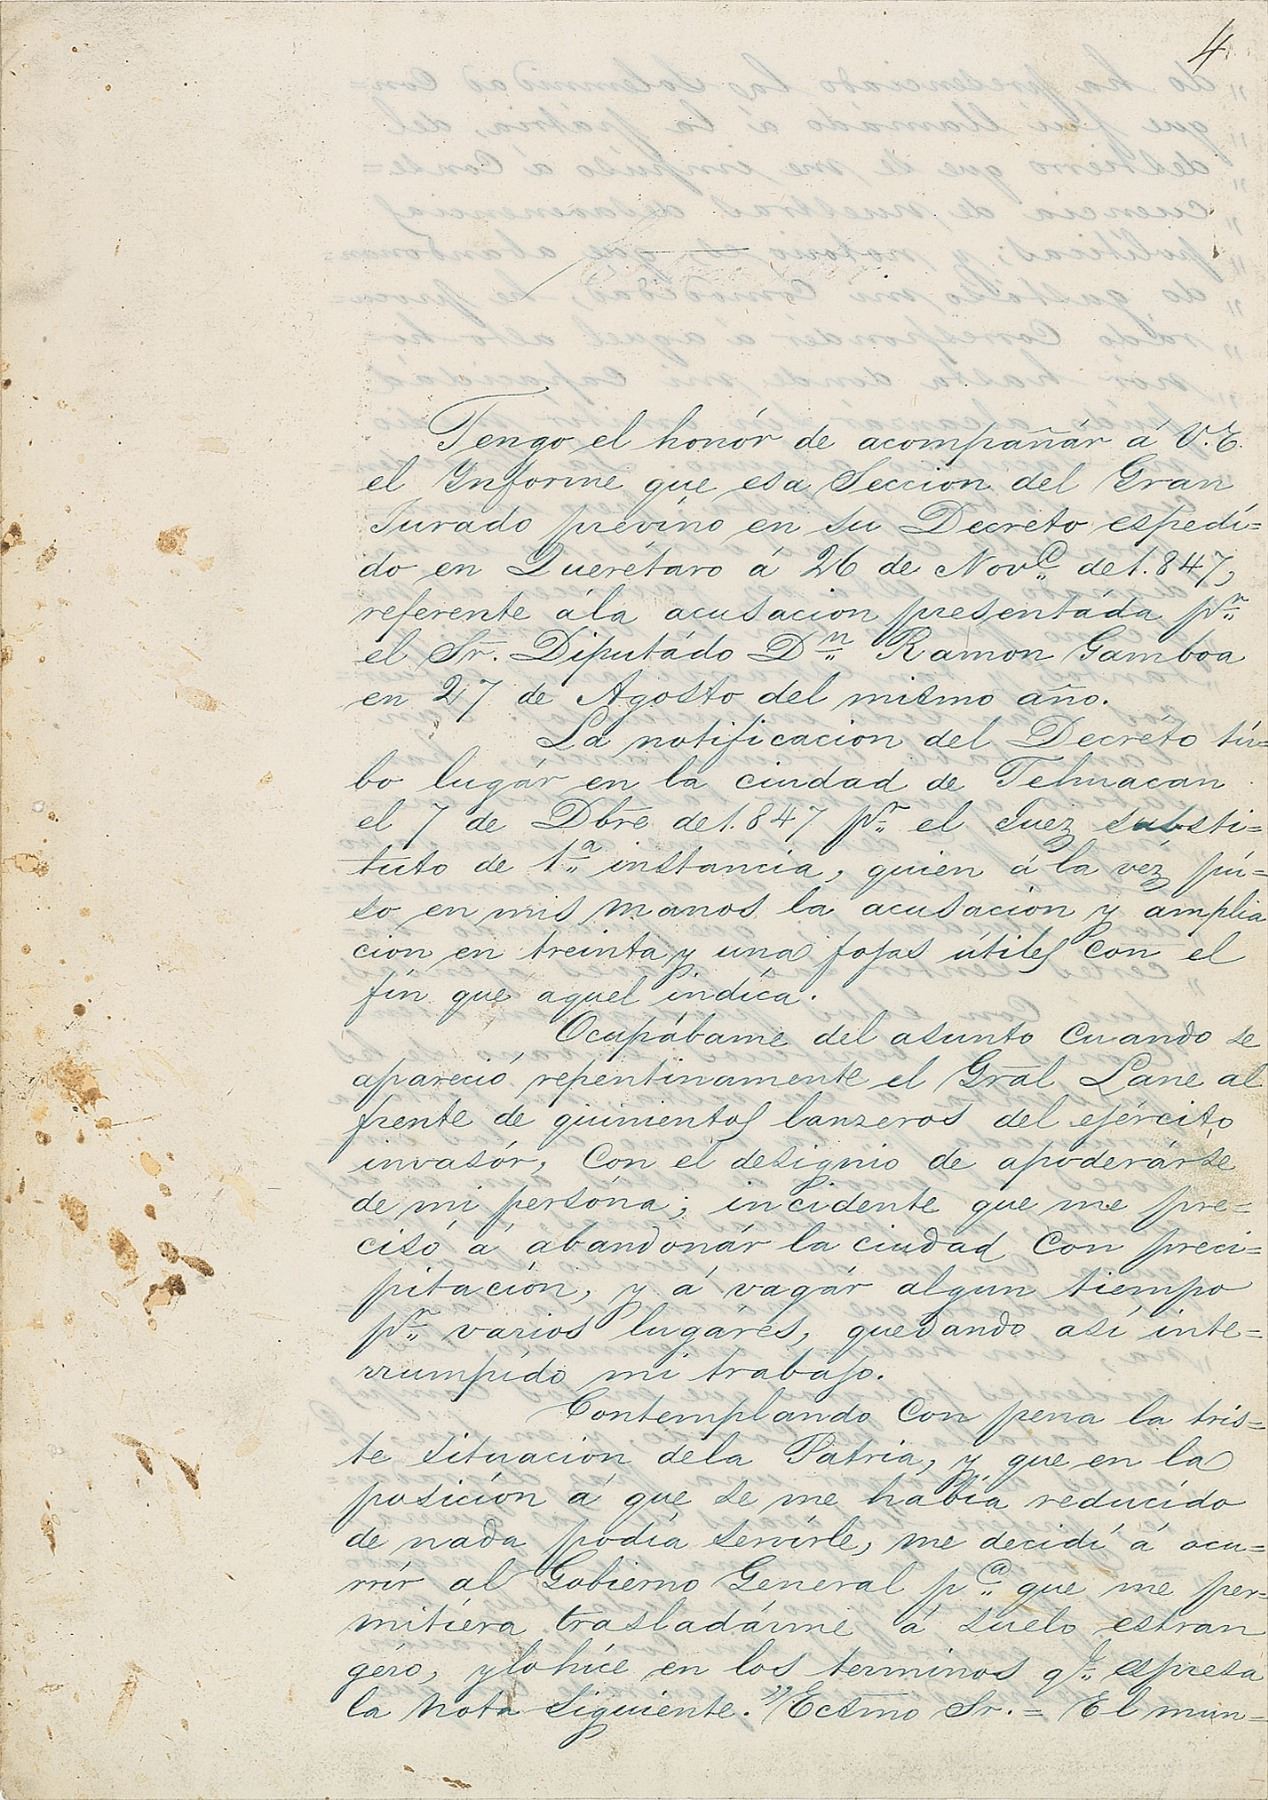 4
Tengo el honór de acompañár á V.E.
el Ynforme que esa Seccion del Gran
Jurado previno en su Decreto espedí=
do en Querétaro á 26 de Novᵉ de 1.847,
referente ála acusacion presentáda pʳ
el Sr. Diputádo Dⁿ Ramon Gamboa
en 27 de Agosto del mismo año.
La notificacion del Decreto tú=
bo lugár en la ciudad de Tehuacan
el 7 de Dbre de 1.847 pʳ el Juez substi=
tuto de 1ª instancia, quien á la véz pú=
so en mis manos la acusacion y amplia
cion en treinta y una fojas útiles con el
fin que aquel indíca.
Ocupábame del asunto cuando se
apareció repentinamente el Gral Lane al
frente de quinientos lanzeros del ejército
invasór, con el designio de apoderárse
de mi persóna; incidente que me pre=
cisó á abandonár la ciudad con preci=
pitación, y á vagár algun tiempo
pʳ varios lugáres, quedando así inte=
rrumpído mi trabajo.
Contemplando con pena la tris=
te situacion dela Patria, y que en la
posición á que se me había reducído
de nada podía servírle, me decidí á ocu=
rrír al Gobierno General pᵃ que me per=
mitiera trasladárme á suelo estran
géro, ylo híce en los términos qᵉ espresa
la nota siguiente. "Ecsmo Sr. = El mun=